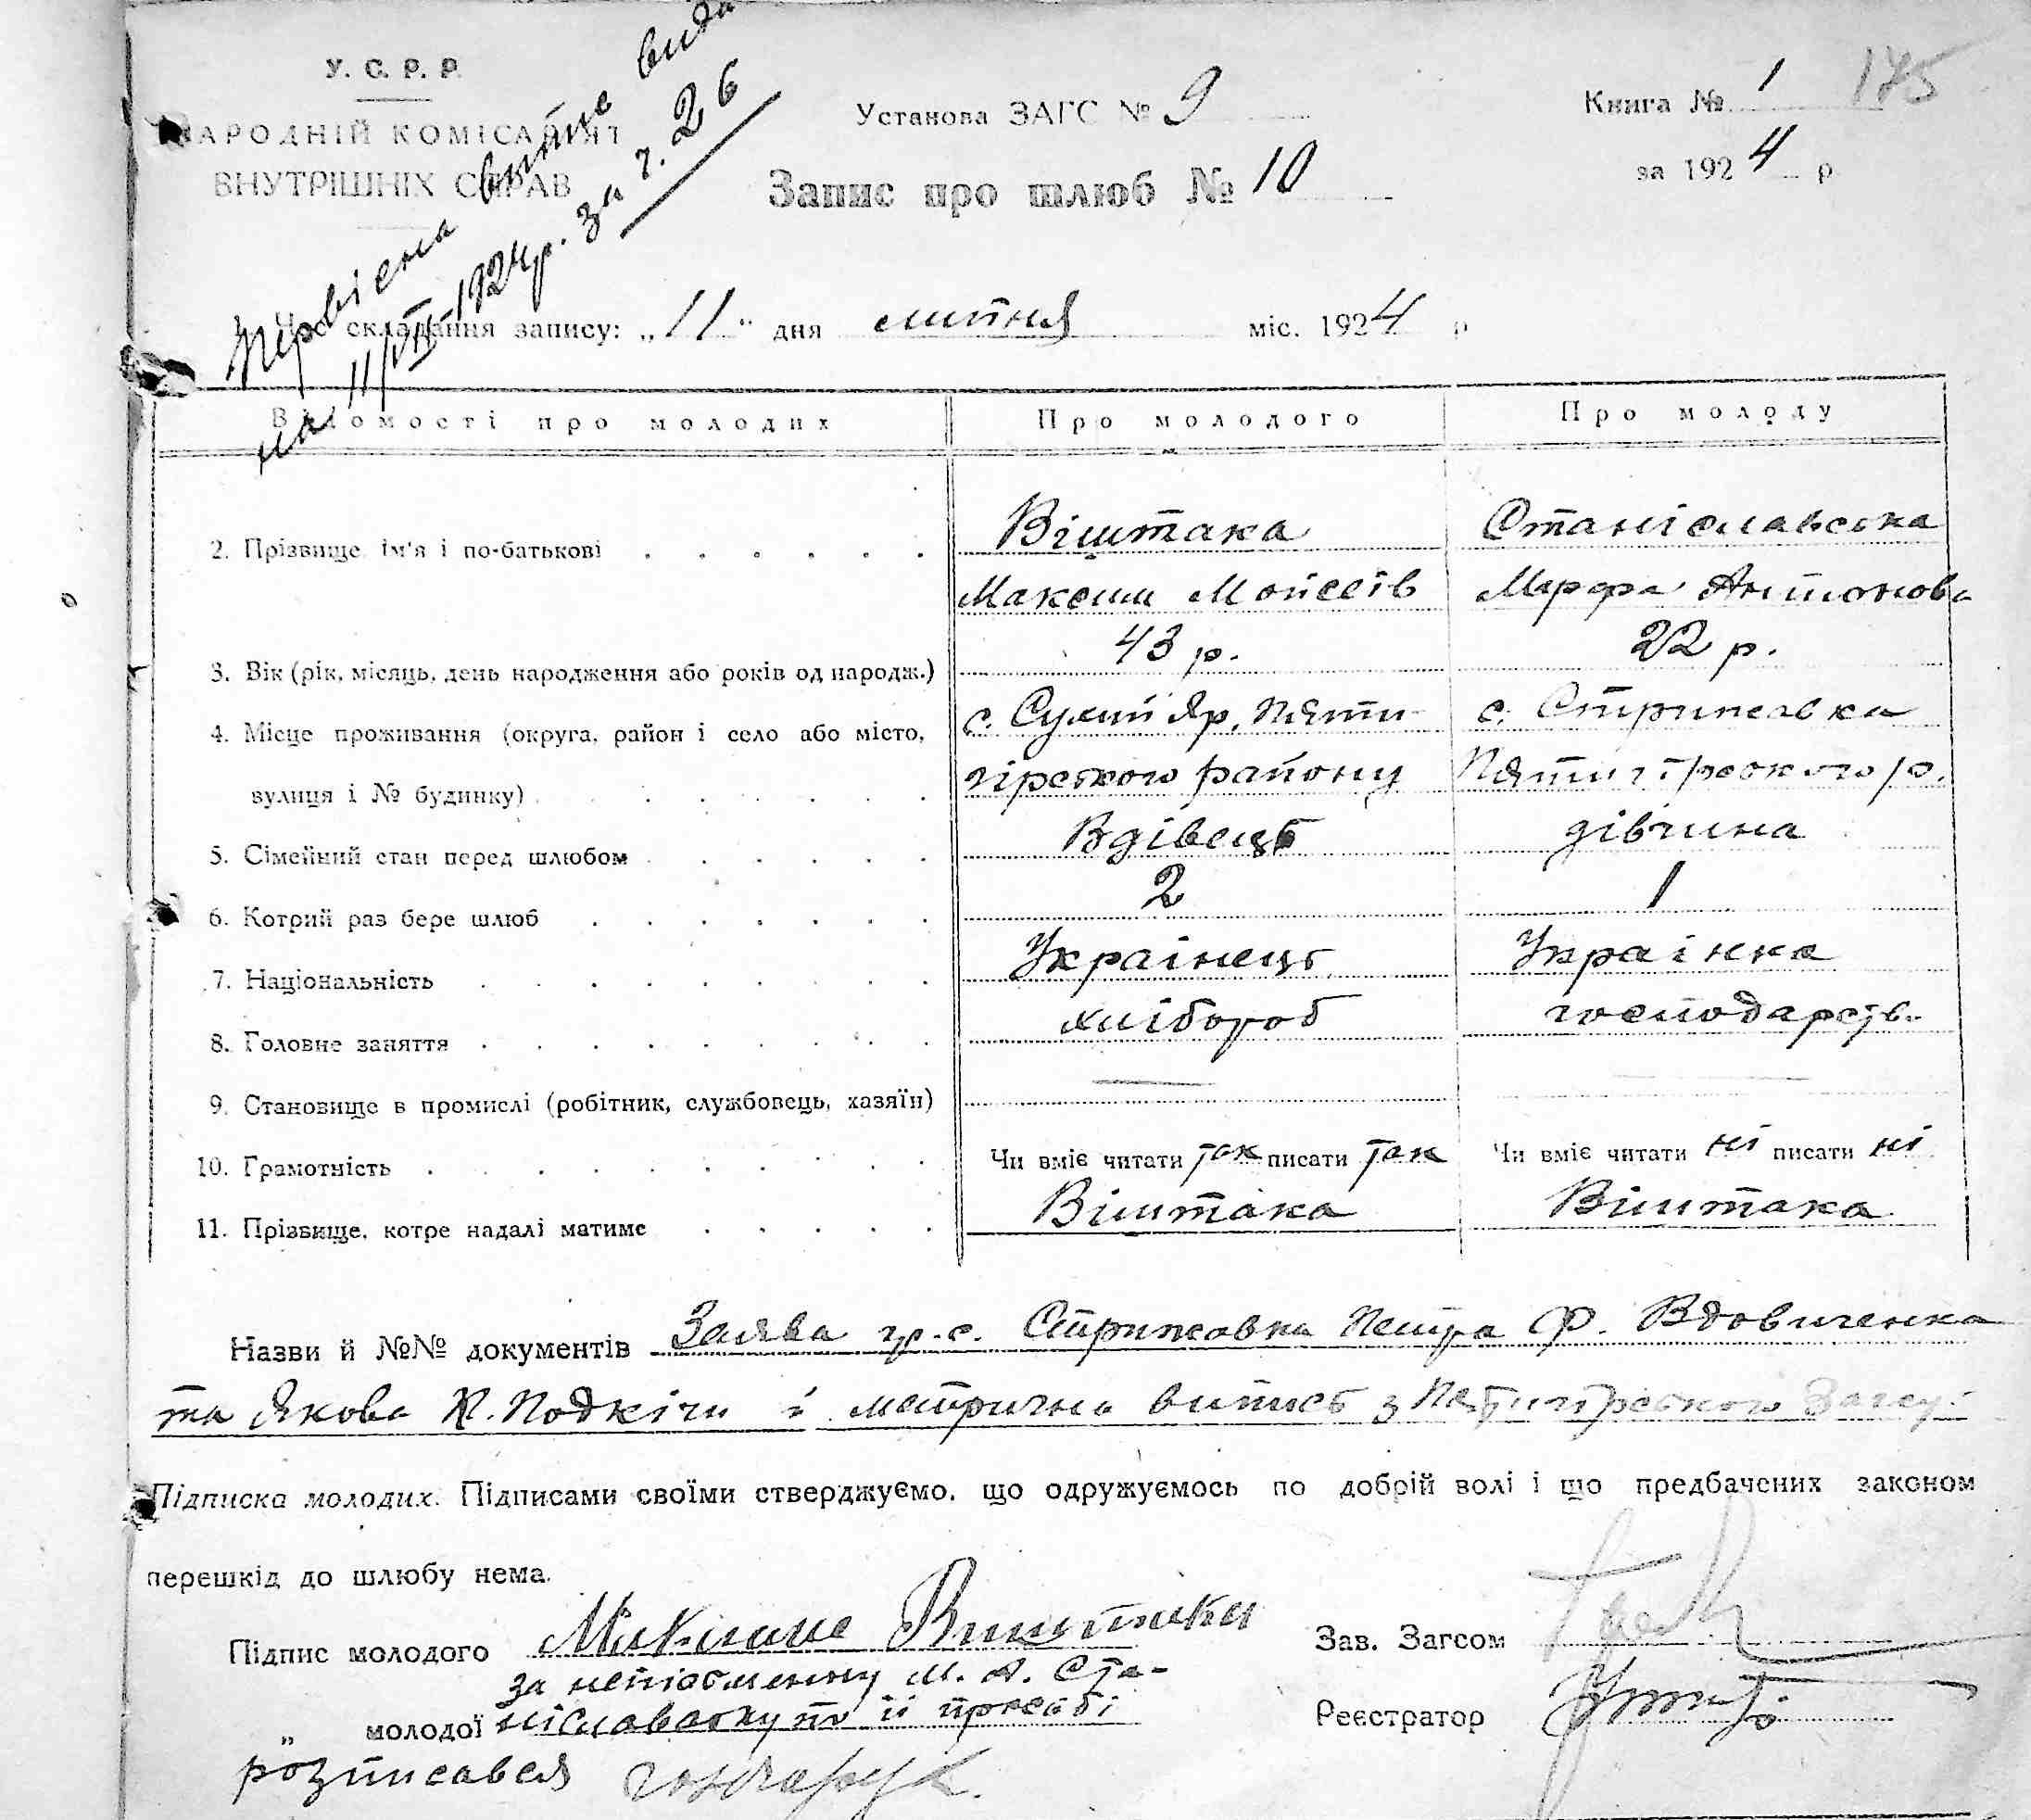 У. С. Р. Р.
НАРОДНІЙ КОМІСАРІЯТ
ВНУТРІШНІХ СПРАВ
Установа ЗАГС № 9
Запис про шлюб № 10
Книга № 1
175
за 1924 р
Первісна випис вида
на 11/VII-1924р. за ч. 26
складання запису: „11" дня липня міс. 1924 р
Відомості про молодих Про молодого Про молоду
2. Прізвище ім'я і по-батькові Віштака Станіславська
Максим Мойсеїв Марфа Антонова
3. Вік (рік, місяць, день народження або років од народж.) 43 р. 22 р.
4. Місце проживання (округа, район і село або місто, с. Сухий Яр, Пяти- с. Стрижовка
вулиця і № будинку) гірського району Пятигірського р.
5. Сімейний стан перед шлюбом Вдівець дівчина
6. Котрий раз бере шлюб 2 1
7. Національність Українець Українка
8. Головне заняття хлібороб господарств.
9. Становище в промислі (робітник, службовець, хазяїн)
10. Грамотність Чи вміє читати так писати так Чи вміє читати ні писати ні
11. Прізвище, котре надалі матиме Віштака Віштака
Назви й №№ документів Заява гр. с. Стрижовка Петра Ф. Вдовиченка
та Якова К. Подкічи і метрична випись з Пятигірського Загсу.
Підписка молодих. Підписами своїми стверджуємо, що одружуємось по добрій волі і що предбачених законом
перешкід до шлюбу нема.
Підпис молодого Виштака
Зав. Загсом
за неписьменну М. А. Ста-
„ молодої ніславську по її просьбі
Реєстратор
розписався Гончарук.